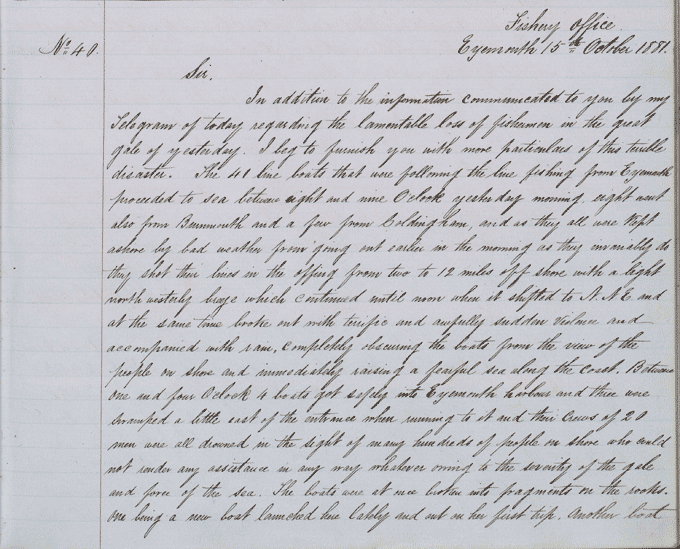 Fishery Office
No. 40. Eyemouth 15th October 1881.
Sir.
In addition to the information communicated to you by my
Telegram of today regarding the lamentable loss of fishermen in the great
gale of yesterday. I beg to furnish you with more particulars of this terrible
disaster. The 41 line boats that were following the line fishing from Eyemouth
proceeded to sea between eight and nine Oclock yesterday morning. eight went
also from Burnmouth and a few from Coldingham, and as they all were kept
ashore by bad weather from going out earlier in the morning as they invariably do
they shot their lines in the offing from two to 12 miles off shore with a light
north westerly breeze which continued until noon when it shifted to N.N.E. and
at the same time broke out with terrific and awfully sudden violence and
accompanied with rain, completely obscuring the boats from the view of the
people on shore and immediately raising a fearful sea along the coast. Between
one and four Oclock 4 boats got safely into Eyemouth harbour and three were
swamped a little east of the entrance when running to it and their crews of 20
men were all drowned in the sight of many hundreds of people on shore who could
not render any assistance in any way whatever owing to the severity of the gale
and force of the sea. The boats were at once broken into fragments on the rocks.
one being a new boat launched here lately and out on her first trip. Another boat